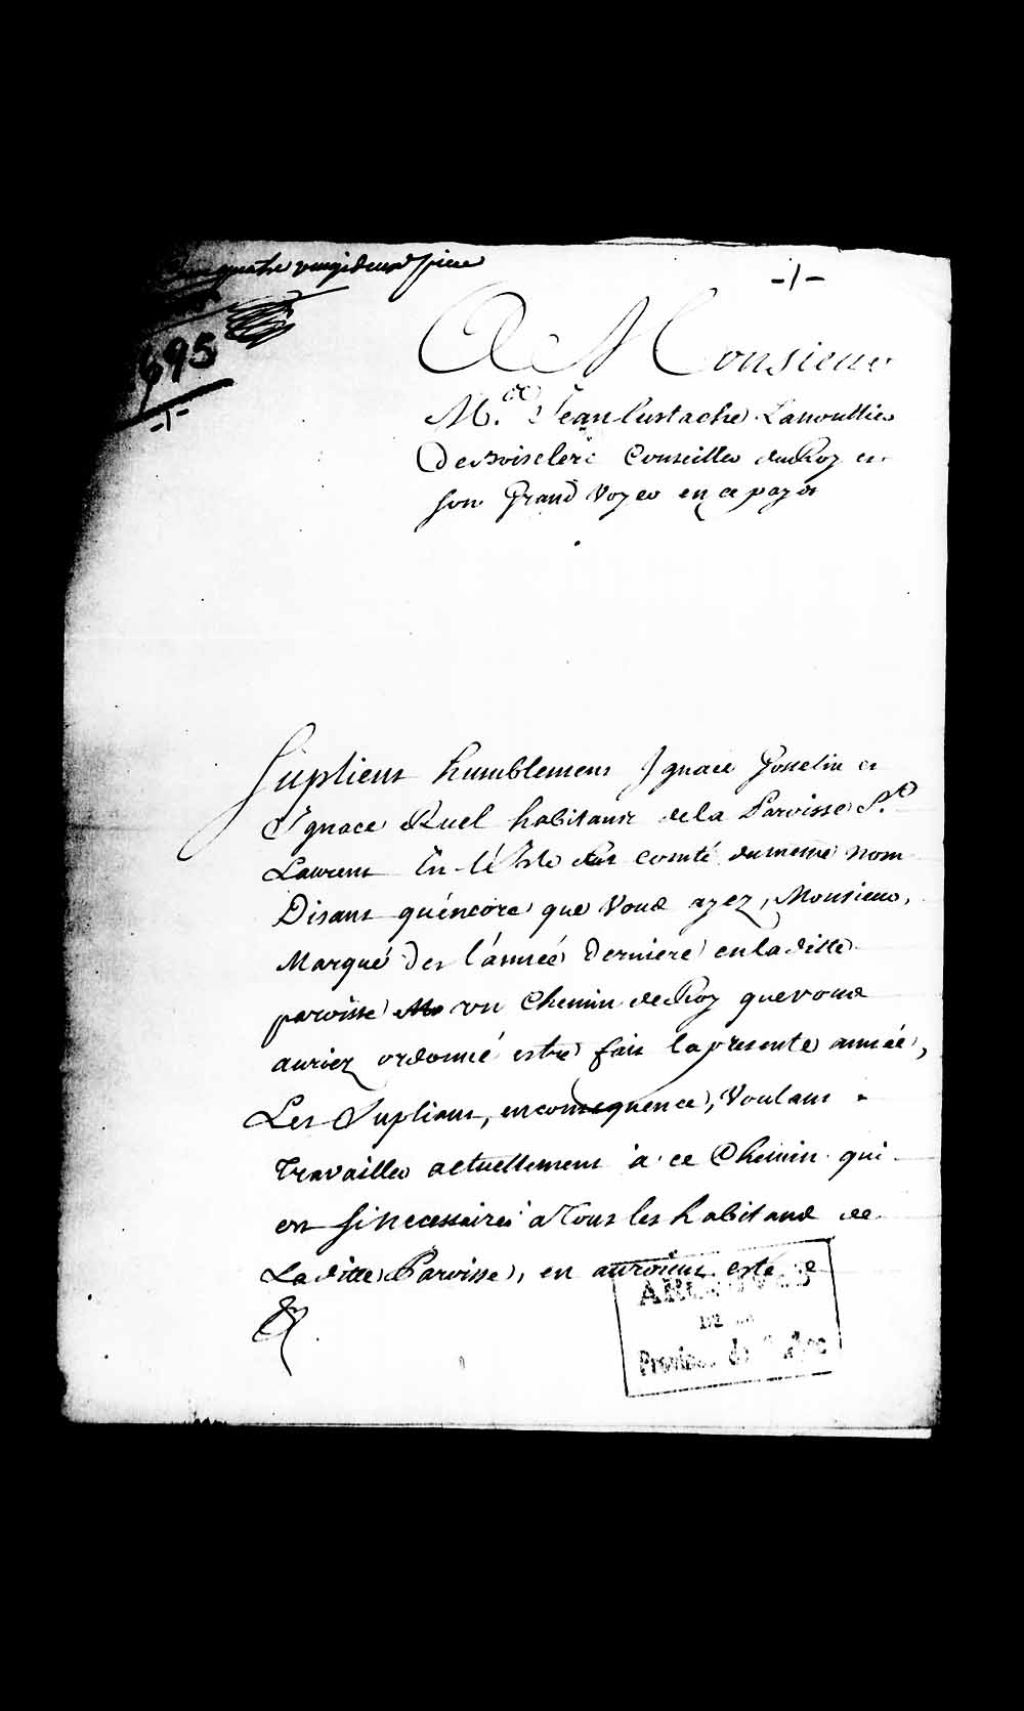 quatre vingt deux piece
-1-
695
-1-
A Monsieur
M.re Jean Eustache Lanoullier
De Boisclerc Conseiller du Roy et
son Grand Voyer en ce pays
Suplient humblement Ignace Gosselin et
Ignace Ruel habitants de la Paroisse St.
Laurent En l'Isle et comté du meme nom
Disant qu'encore que Vous ayez, Monsieur,
Marqué Des l'année Derniere en la ditte
paroisse un Chemin de Roy que vous
auriez ordonné estre fait la presente année,
Les Supliant, en consequence, Voulant
Travailler actuellement a ce Chemin qui
est si necessaire a Tous les habitans de
La ditte Paroisse, en auroient esté
ARCHIVES
DE LA
Province de Québec